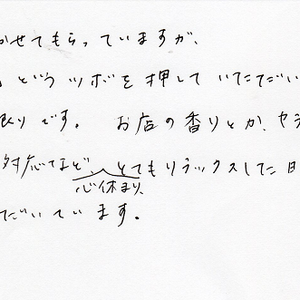 かせてもらっていますが、
というツボを押していただい
です。 お店の香りとか、セラ
対応など、とてもリラックスした日
心休まり、
だいています。